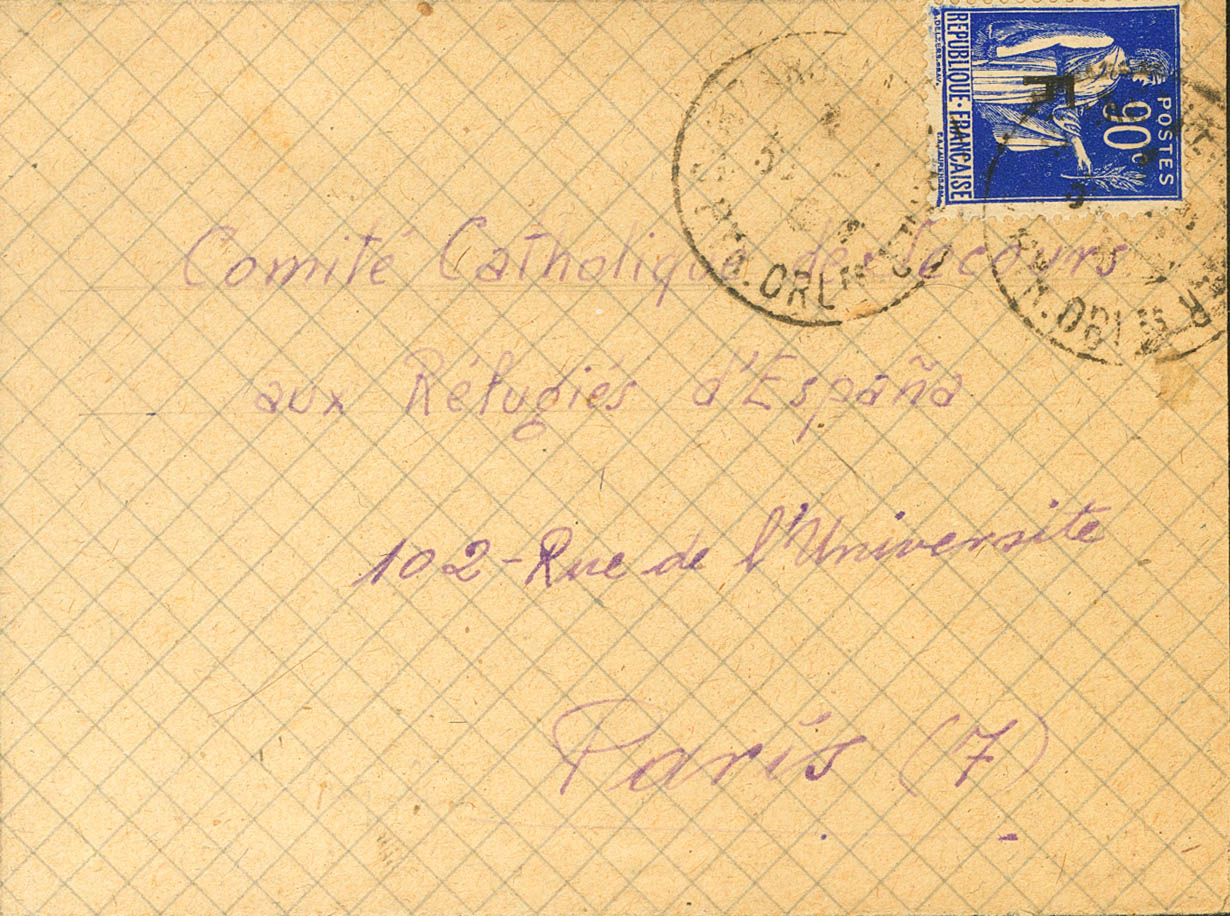 REPUBLIQUE · FRANÇAISE
POSTES
90c
F
Comité Catholique des Secours
aux Réfugiés d'España
102 - Rue de l'Universite
París (7)